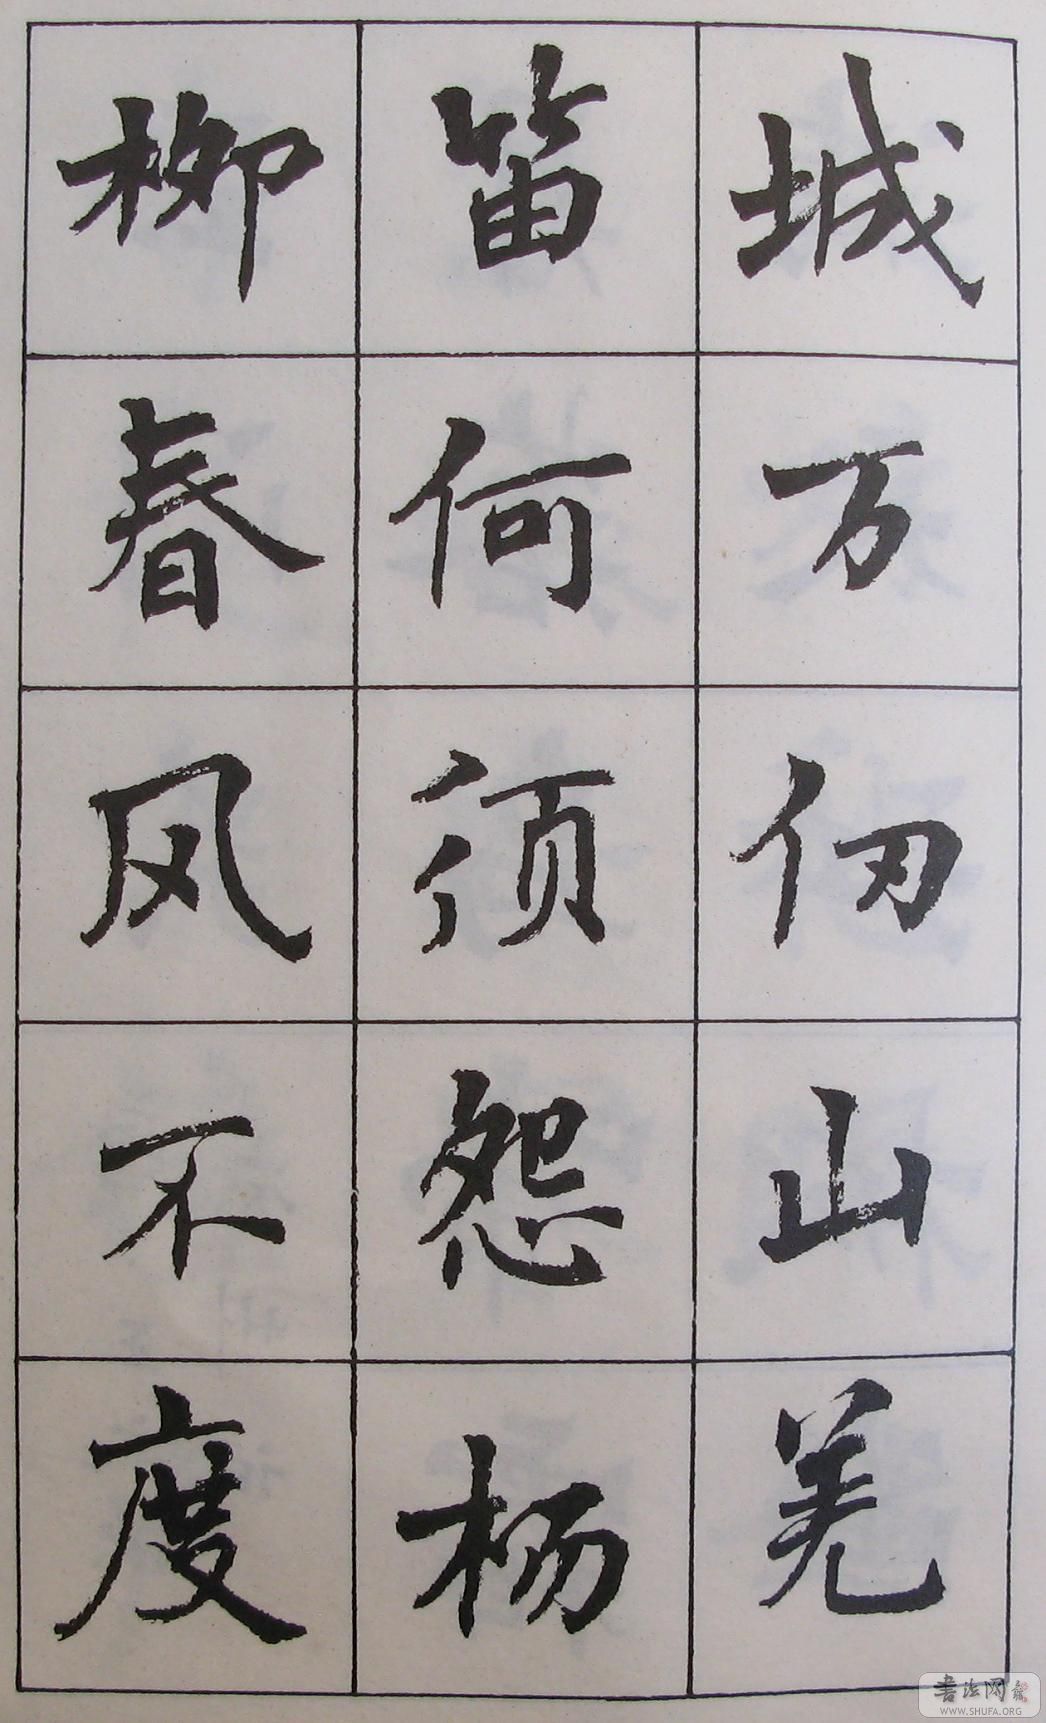 城万仞山羌
笛何须怨杨
柳春风不度
书法网
WWW.SHUFA.ORG